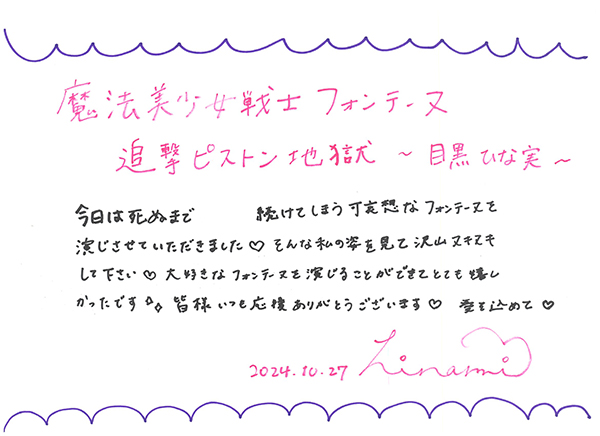 魔法美少女戦士フォンテーヌ
追撃ピストン地獄 ～目黒ひな実～
今日は死ぬまで 続けてしまう可哀想なフォンテーヌを
演じさせていただきました♡ そんな私の姿を見て沢山ヌキヌキ
して下さい♡ 大好きなフォンテーヌを演じることができてとても嬉し
かったです 皆様いつも応援ありがとうございます♡ 愛を込めて♡
2024.10.27 Hinami